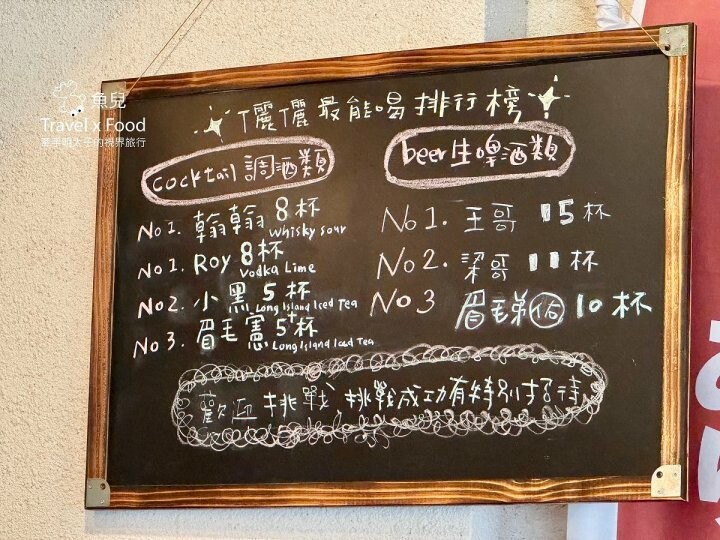 魚兒
Travel x Food
儷儷最能喝排行榜
cocktail 調酒類
No 1. 翰翰 8 杯
Whisky sour
No 1. ROY 8 杯
Vodka Lime
No 2. 小黑 5 杯
Long Island Iced Tea
No 3. 眉毛憲 5+ 杯
Long Island Iced Tea
beer 生啤酒類
No 1. 王哥 15 杯
No 2. 梁哥 11 杯
No 3 眉毛弟 佑 10 杯
歡迎挑戰 挑戰成功有特別招待